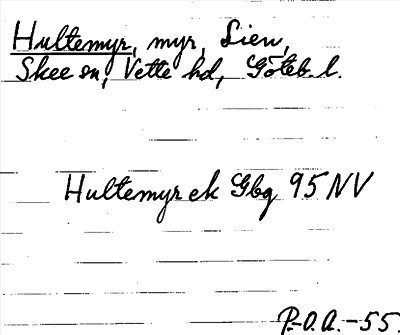 Hultemyr, myr, Lien,
Skee sn, Vette hd, Göteb. l.
Hultemyr ek Gbg 95 NV
P.O.A. -55.